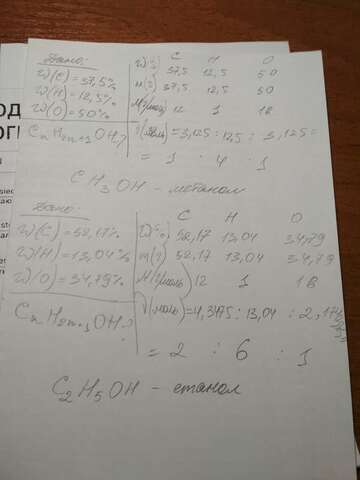 Дано:
w(C) = 37,5%
w(H) = 12,5%
w(O) = 50%
CnH2n+1OH - ?
C H O
w(%) 37,5 12,5 50
m(г) 37,5 12,5 50
M(г/моль) 12 1 16
ν(моль) = 3,125 : 12,5 : 3,125 =
= 1 : 4 : 1
CH3OH - метанол
Дано:
w(C) = 52,17%
w(H) = 13,04%
w(O) = 34,79%
CnH2n+1OH - ?
C H O
w(%) 52,17 13,04 34,79
m(г) 52,17 13,04 34,79
M(г/моль) 12 1 16
ν(моль) = 4,3475 : 13,04 : 2,174
= 2 : 6 : 1
C2H5OH - етанол